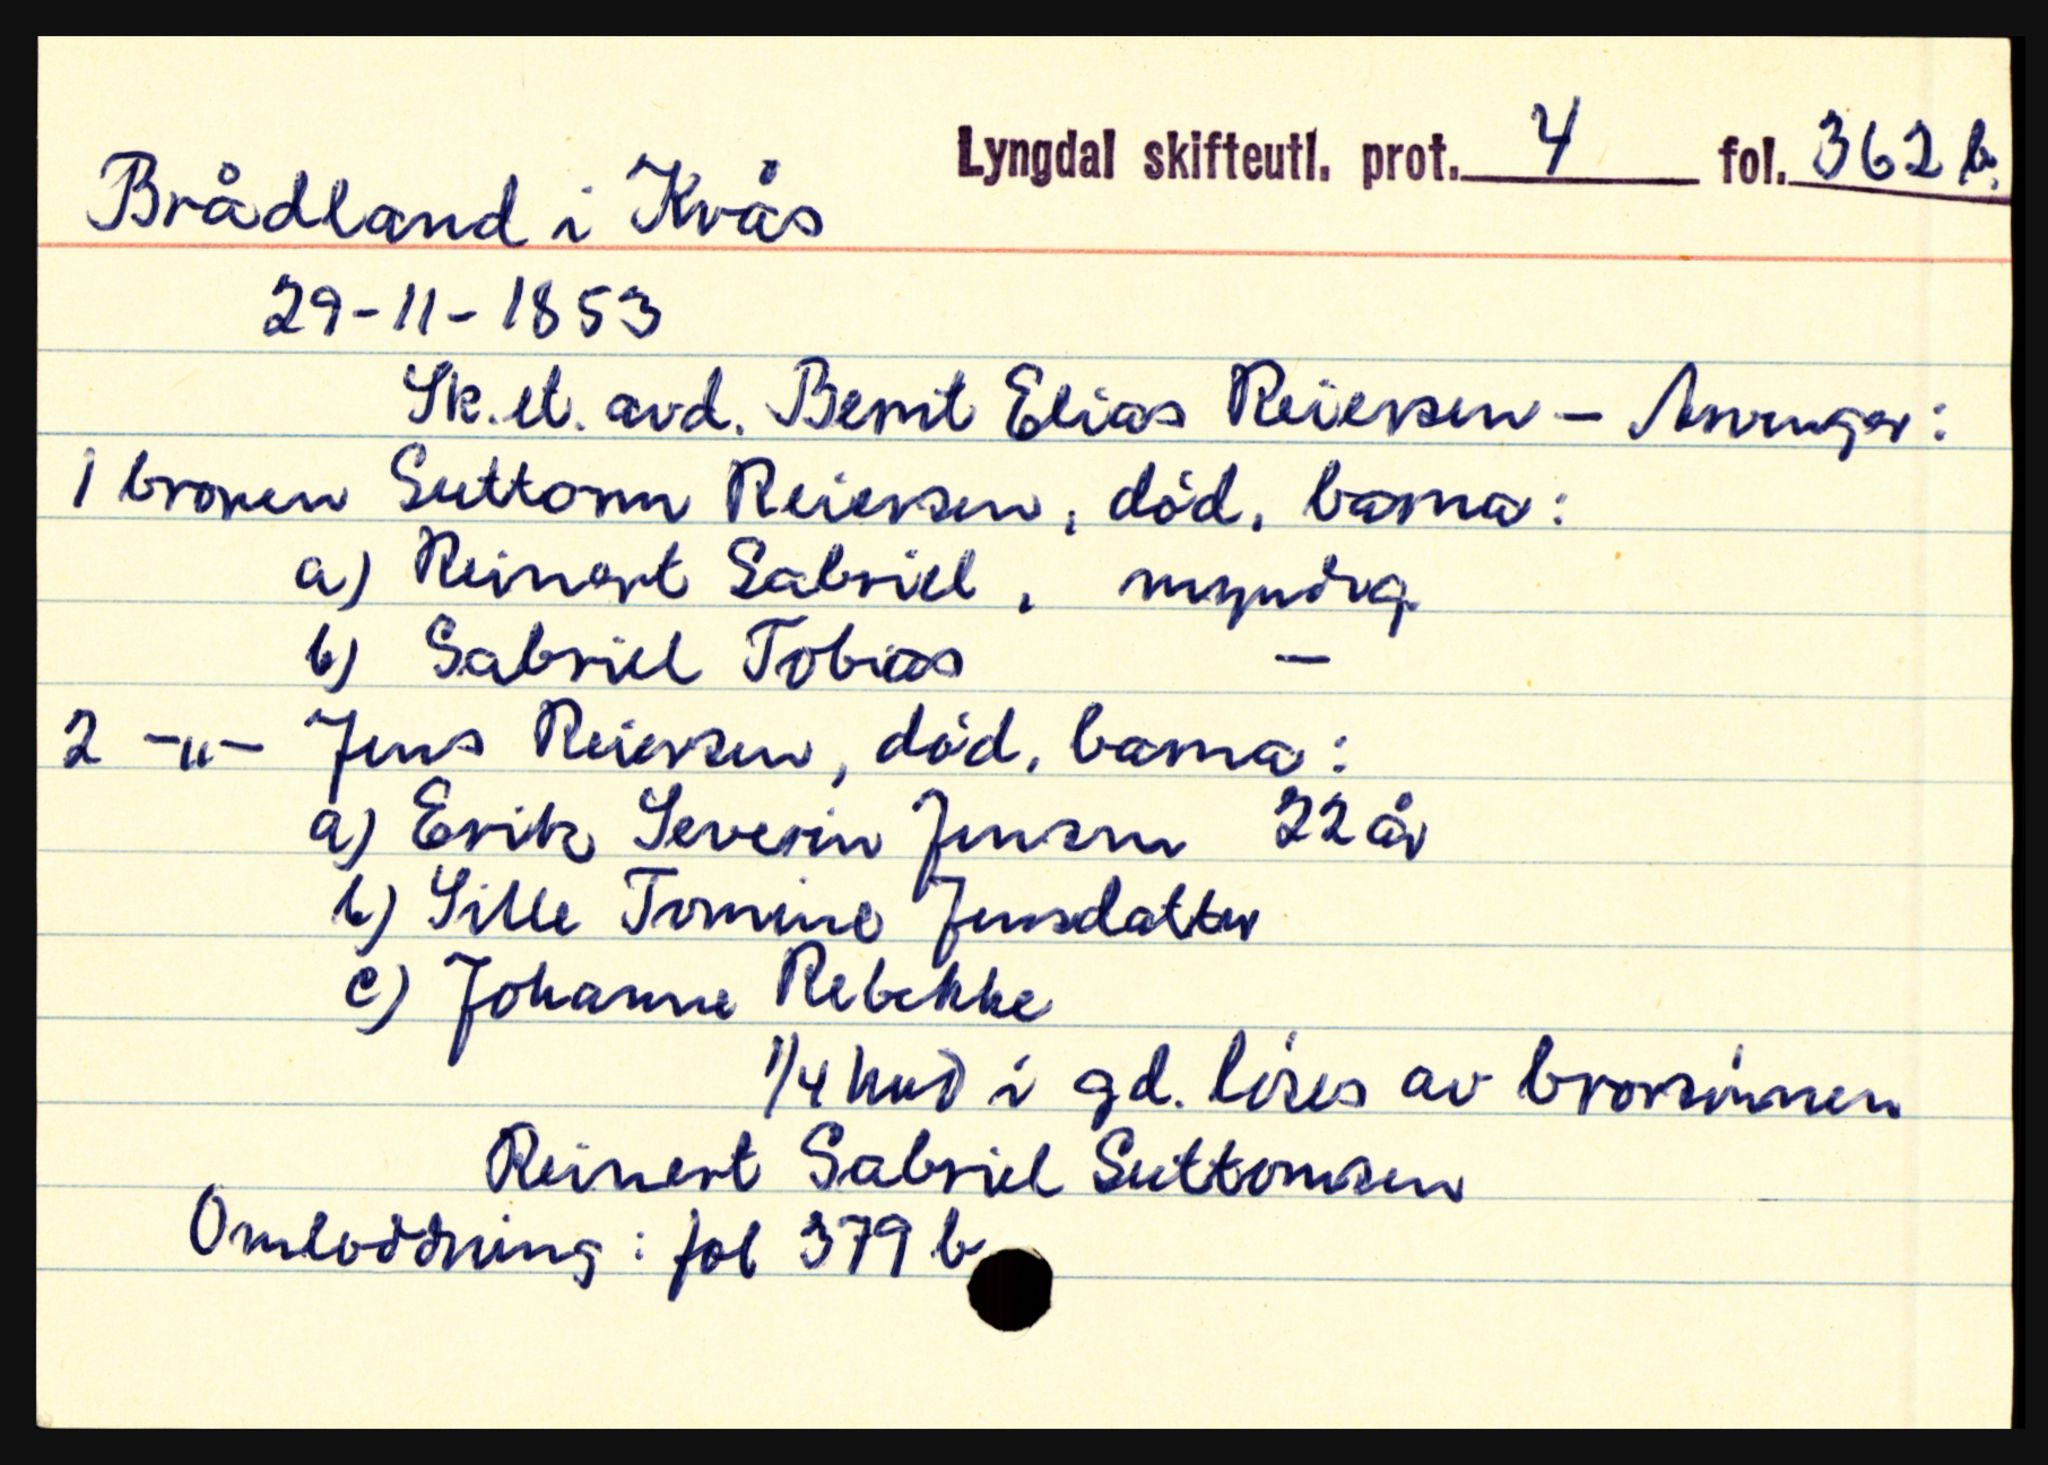 Lyngdal skifteutl. prot. 4 fol. 362 b.
Brådland i Kvås
29-11-1853
Sk. et. avd. Bernt Elias Reiersen – Arvinger:
1 broren Guttorm Reiersen, død, barna:
a) Reinert Gabriel, myndig
b) Gabriel Tobias —
2 -"- Jens Reiersen, død, barna:
a) Erik Severin Jensen 22 år
b) Sille Tomine Jensdatter
c) Johanne Rebekke
1/4 hud i gd. löses av brorsönnen
Reinert Gabriel Guttormsen
Omloddning: fol 379 b